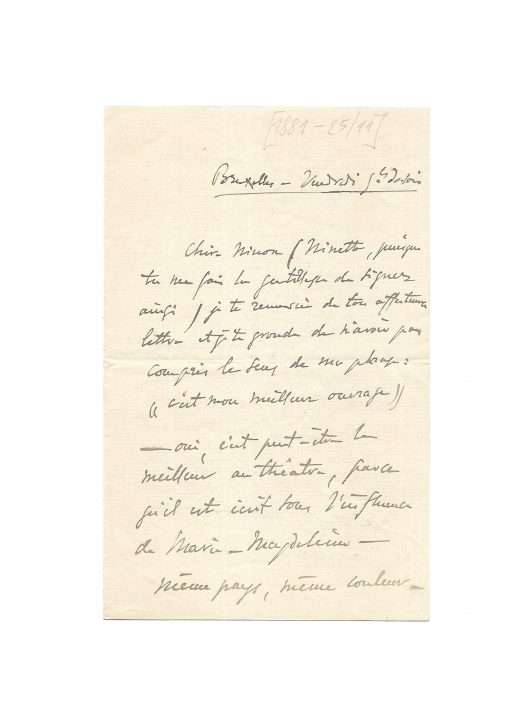 [1881 – 25/11]
Bruxelles – Vendredi 5h du soir
Chère Ninon (Ninette, puisque
tu me fais la gentillesse de signer
ainsi) je te remercie de ton affectueuse
lettre et je te gronde de n'avoir pas
compris le sens de ma phrase :
« c'est mon meilleur ouvrage »
— oui, c'est peut-être le
meilleur au théâtre, parce
qu'il est écrit sous l'influence
de Marie-Magdeleine —
même pays, même couleur —